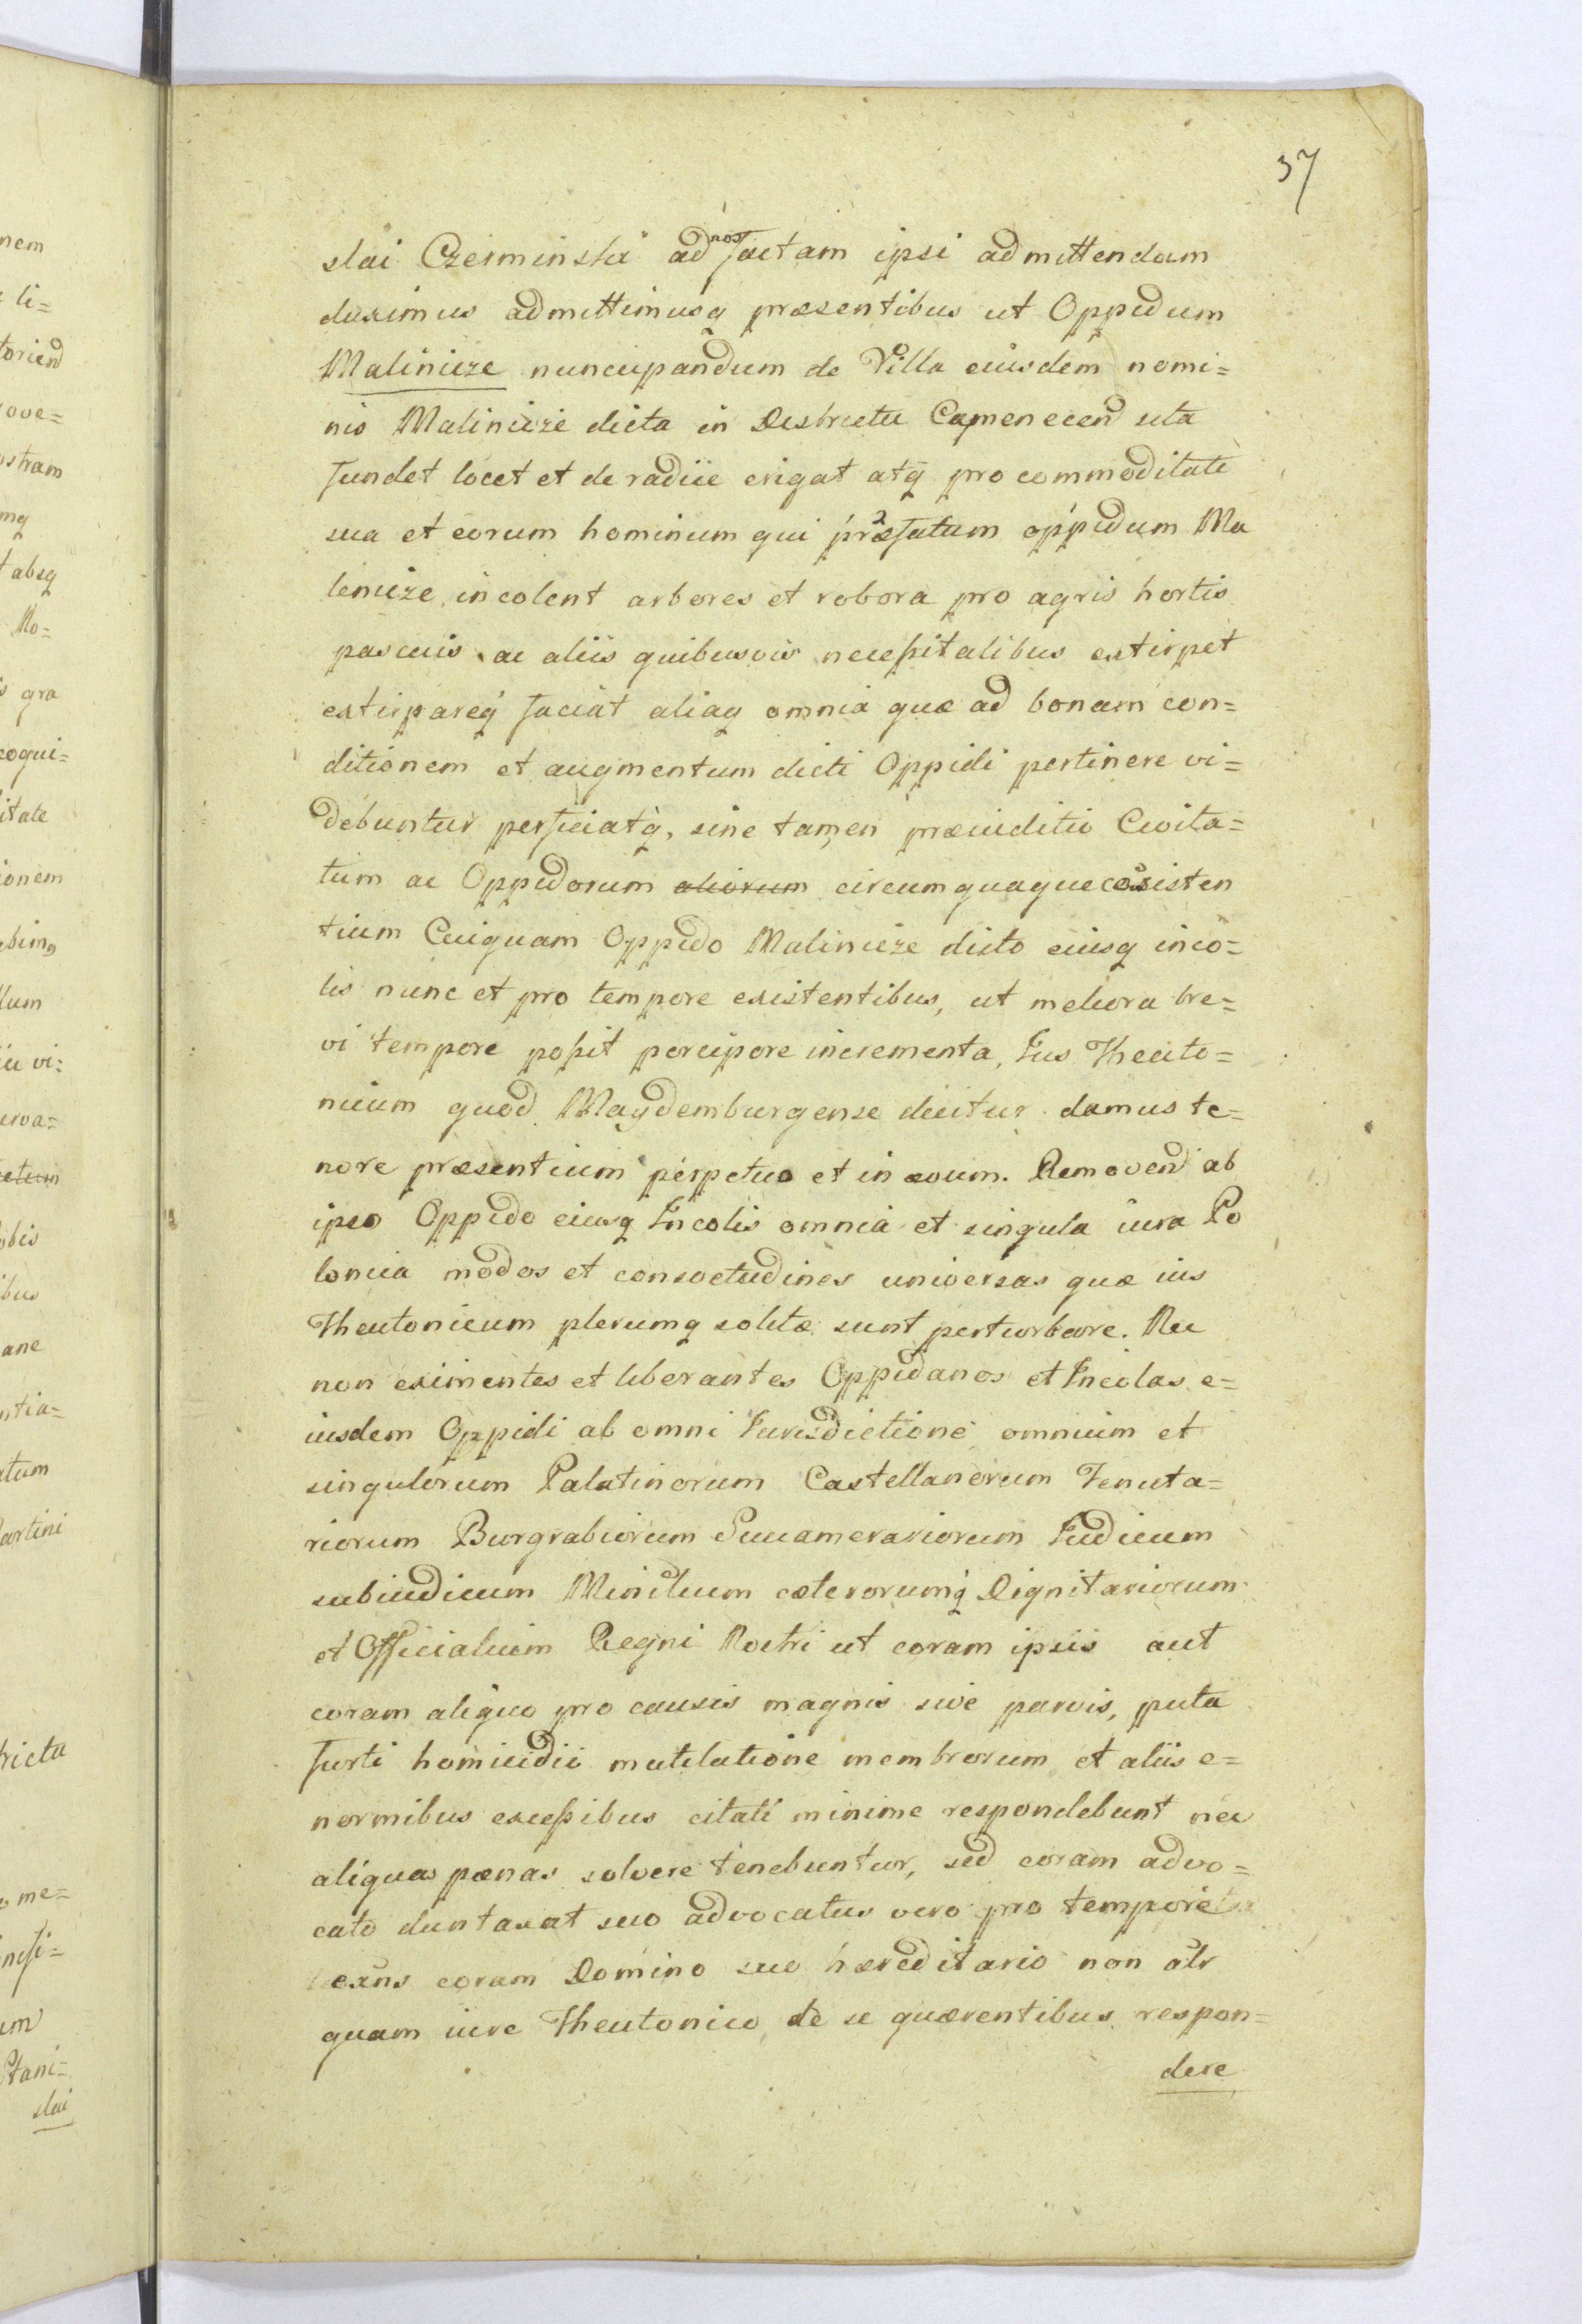 37
slai Czerminski ad nos factam ipsi admittendam
duximus admittimusq præsentibus ut Oppidum
Malinicze nuncupandum de Villa eiusdem nomi=
nis Malinicze dicta in Districtu Camenecen sita
fundet locet et de radice erigat atq pro commoditate
sua et eorum hominum qui præfatum oppidum Ma
linicze incolent arbores et robora pro agris hortis
pascuis ac aliis quibusvis neceßitatibus extirpet
extirpareq faciat aliaq omnia quæ ad bonam con=
ditionem et augmentum dicti Oppidi pertinere vi=
debuntur perficiatq, sine tamen præiuditio Civita=
tum ac Oppidorum aliorum circumquaque coexisten
tium Cuiquam Oppido Malinicze dicto eiusq inco=
lis nunc et pro tempore existentibus, ut meliora bre=
vi tempore poßit percipere incrementa, Ius Theuto=
nicum quod Maydemburgense dicitur damus te=
nore præsentium perpetuo et in ævum. Removend ab
ipso Oppido eiusq Incolis omnia et singula iura Po
lonica modos et consvetudines universas quæ ius
Theutonicum plerumq solitæ sunt perturbare. Nec
non eximentes et liberantes Oppidanos et Incolas e=
iusdem Oppidi ab omni Iurisdictione omnium et
singulorum Palatinorum Castellanorum Tenuta=
riorum Burgrabiorum Succamerariorum Iudicum
subiudicum Ministrum cæterorumq Dignitariorum
et Officialium Regni Nostri ut coram ipsis aut
coram aliquo pro causis magnis sive parvis, puta
furti homicidii mutilatione membrorum et aliis e=
normibus exceßibus citati minime respondebunt nec
aliquas pænas solvere tenebuntur, sed coram advo=
cato duntaxat suo advocatus vero pro tempore
exns coram Domino suo hæreditario non alr
quam iure Theutonico de se quærentibus respon=
dere